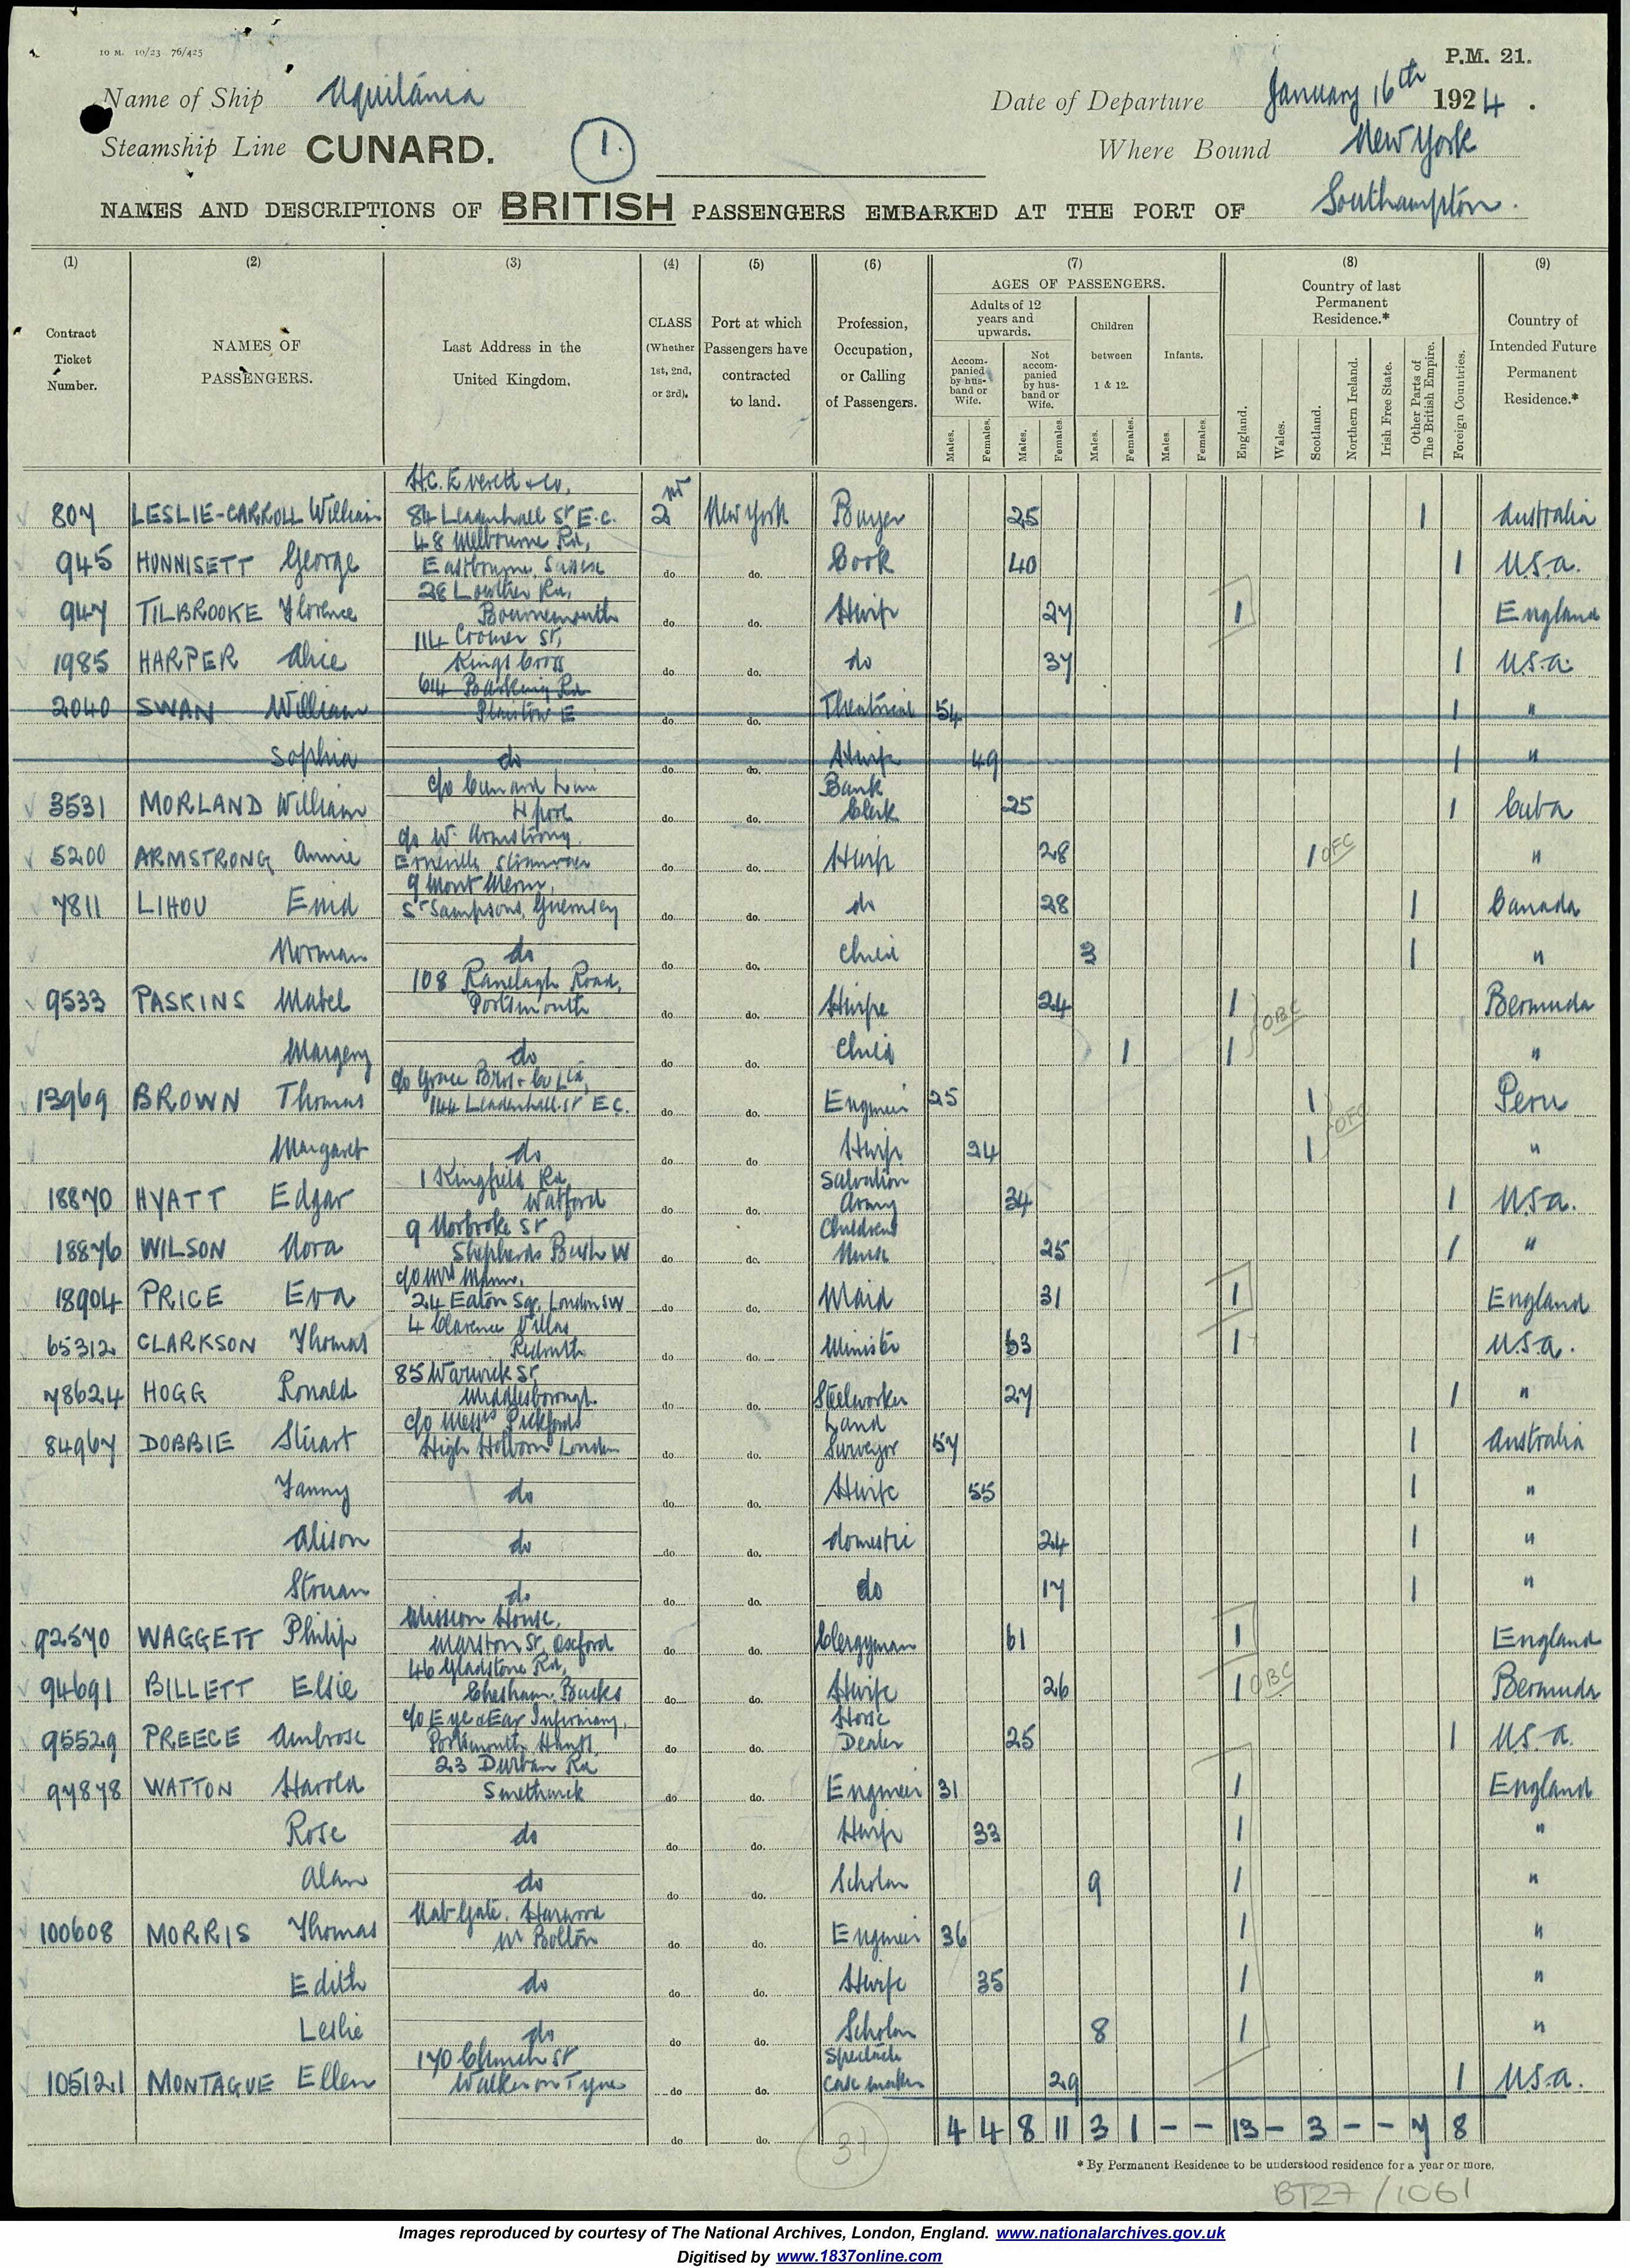 10 M. 10/23 76/425
P.M. 21.
Name of Ship Aquitania
Date of Departure January 16th 1924.
Steamship Line CUNARD.
1.
Where Bound New York
NAMES AND DESCRIPTIONS OF BRITISH PASSENGERS EMBARKED AT THE PORT OF Southampton.
(1) (2) (3) (4) (5) (6) (7) (8) (9)
Contract Ticket Number.
NAMES OF PASSENGERS.
Last Address in the United Kingdom.
CLASS (Whether 1st, 2nd, or 3rd).
Port at which Passengers have contracted to land.
Profession, Occupation, or Calling of Passengers.
AGES OF PASSENGERS.
Adults of 12 years and upwards.
Accompanied by husband or Wife.
Not accompanied by husband or Wife.
Children between 1 & 12.
Infants.
Males. Females. Males. Females. Males. Females. Males. Females.
Country of last Permanent Residence.*
England. Wales. Scotland. Northern Ireland. Irish Free State. Other Parts of The British Empire. Foreign Countries.
Country of Intended Future Permanent Residence.*
H.C. Everett & Co,
807 LESLIE-CARROLL William 84 Leadenhall St E.C. 2nd New York Buyer 25 1 Australia
48 Melbourne Rd,
945 HUNNISETT George Eastbourne, Sussex do do. Cook 40 1 U.S.A.
28 Lowther Rd,
947 TILBROOKE Florence Bournemouth do do. Hwife 27 1 England
114 Cromer St,
1985 HARPER Alice Kings Cross do do. do 37 1 U.S.A.
614 Barking Rd
2040 SWAN William Plaistow E do do. Theatrical 54 1 "
Sophia do do do. Hwife 49 1 "
c/o Cunard Line Bank
3531 MORLAND William L'pool do do. Clerk 25 1 Cuba
c/o W. Armstrong,
5200 ARMSTRONG Annie do do. Hwife 28 1 OFC "
9 Mont Morin,
7811 LIHOU Enid St Sampsons, Guernsey do do. do 28 1 Canada
Norman do do do. Child 3 1 "
108 Ranelagh Road,
9533 PASKINS Mabel Portsmouth do do. Hwife 24 1 OBC Bermuda
Margery do do do. Child 1 1 "
c/o Grace Bros & Co Ltd,
13969 BROWN Thomas 144 Leadenhall St E.C. do do. Engineer 25 1 OFC Peru
Margaret do do do. Hwife 24 1 "
1 Kingfield Rd Salvation
18870 HYATT Edgar Watford do do. Army 34 1 U.S.A.
9 Norbroke St Childrens
18876 WILSON Nora Shepherds Bush W do do. Nurse 25 1 "
c/o Mrs Mann,
18904 PRICE Eva 24 Eaton Sq, London SW do do. Maid 31 1 England
4 Clarence Villas
65312 CLARKSON Thomas Redruth do do. Minister 63 1 U.S.A.
85 Warwick St,
78624 HOGG Ronald Middlesborough do do. Steelworker 27 1 "
c/o Messrs Pickfords Land
84967 DOBBIE Stuart High Holborn London do do. Surveyor 57 1 Australia
Fanny do do do. Hwife 55 1 "
Alison do do do. domestic 24 1 "
Struan do do do. do 17 1 "
Mission House,
92570 WAGGETT Philip Marston St, Oxford do do. Clergyman 61 1 England
46 Gladstone Rd,
94691 BILLETT Elsie Chesham, Bucks do do. Hwife 26 1 OBC Bermuda
c/o Eye & Ear Infirmary, Horse
95529 PREECE Ambrose Portsmouth Hants do do. Dealer 25 1 U.S.A.
23 Durban Rd
97878 WATTON Harold Smethwick do do. Engineer 31 1 England
Rose do do do. Hwife 33 1 "
Alan do do do. Scholar 9 1 "
Nab Gate, Harwood
100608 MORRIS Thomas nr Bolton do do. Engineer 36 1 "
Edith do do do. Hwife 35 1 "
Leslie do do do. Scholar 8 1 "
170 Church St Spectacle
105121 MONTAGUE Ellen Walker on Tyne do do. Case maker 29 1 U.S.A.
do do. 31 4 4 8 11 3 1 - - 13 - 3 - - 7 8
* By Permanent Residence to be understood residence for a year or more.
BT27/1061
Images reproduced by courtesy of The National Archives, London, England. www.nationalarchives.gov.uk
Digitised by www.1837online.com